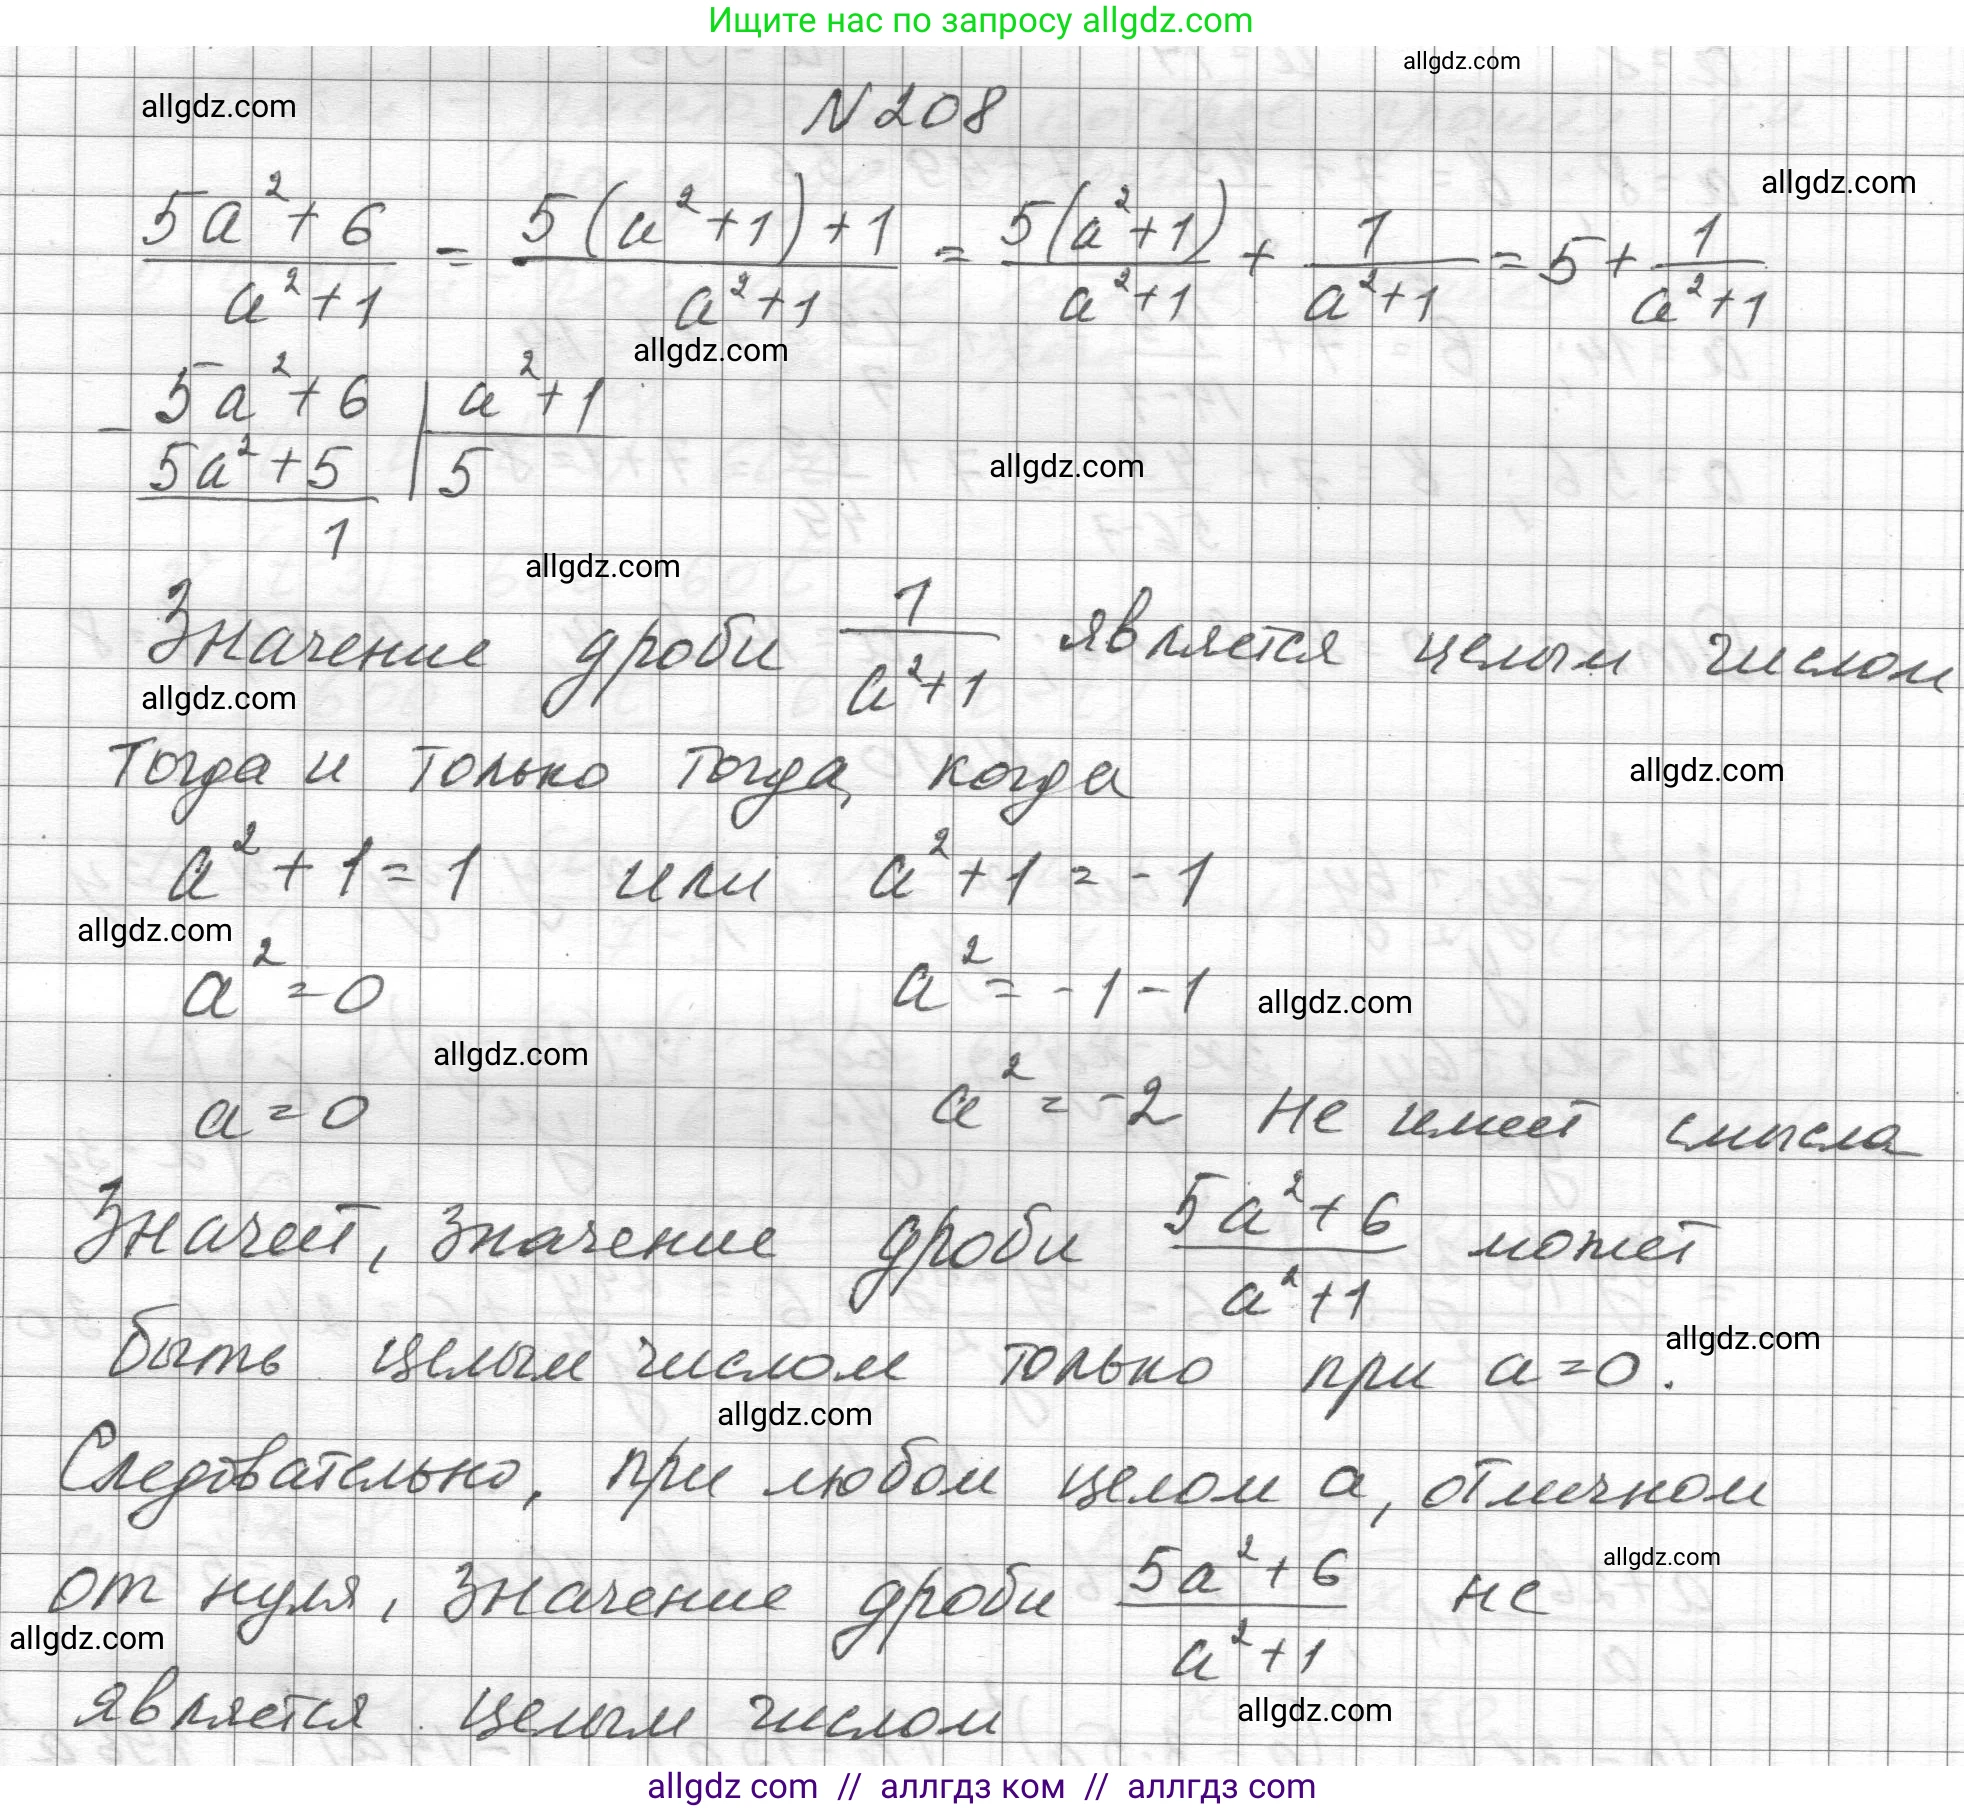 Ищите нас по запросу allgdz.com
allgdz.com
allgdz.com
N 208
allgdz.com
(5a²+6)/(a²+1) = (5(a²+1)+1)/(a²+1) = 5(a²+1)/(a²+1) + 1/(a²+1) = 5 + 1/(a²+1)
allgdz.com
- 5a²+6 | a²+1
5a²+5 | 5
allgdz.com
1
allgdz.com
Значение дроби 1/(a²+1) является целым числом
allgdz.com
тогда и только тогда, когда
allgdz.com
a²+1=1 или a²+1=-1
allgdz.com
a²=0 a²=-1-1
allgdz.com
allgdz.com
a=0 a²=-2 не имеет смысла
Значит, значение дроби (5a²+6)/(a²+1) может
allgdz.com
быть целым числом только при a=0.
allgdz.com
Следовательно, при любом целом a, отличном
allgdz.com
от нуля, значение дроби (5a²+6)/(a²+1) не
allgdz.com
является целым числом
allgdz.com
allgdz com // аллгдз ком // аллгдз com